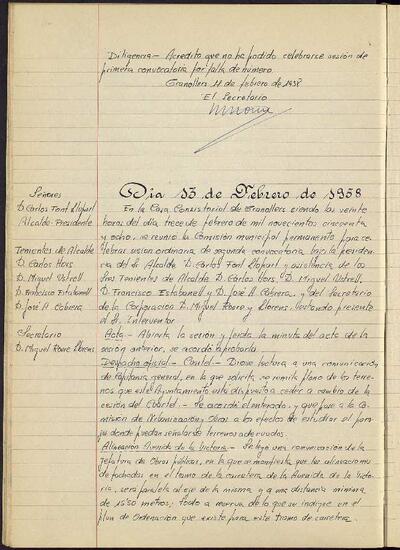 Diligencia.- Acredito que no ha podido celebrarse sesión de
primera convocatoria por falta de número
Granollers 11 de febrero de 1958
El Secretario
Día 13 de Febrero de 1958
Señores
D. Carlos Font Llopart
Alcalde-Presidente
Tenientes de Alcalde
D. Miquel Vetrell
D. Francisco Estabanell
D. José A. Cabrera
Secretario
D. Miquel Roure Llorens
En la Casa Consistorial de Granollers siendo las veinte
horas del día trece de febrero de mil novecientos cincuenta
y ocho, se reunió la Comisión municipal permanente para ce-
lebrar sesión ordinaria de segunda convocatoria bajo la presiden-
cia del Sr Alcalde D. Carlos Font Llopart y asistencia de los
Sres Tenientes de Alcalde D. Carlos D. Miquel Vetrell,
D. Francisco Estabanell y D. José A. Cabrera, y del Secretario
de la Corporación D. Miquel Roure y Llorens, estando presente
el Sr. Interventor
Acta.- Abierta la sesión y leída la minuta del acta de la
sesión anterior, se acordó aprobarla.
Despacho oficial - Cuartel.- Dióse lectura a una comunicación
de Capitanía general, en la que solicita se remita plano de los terre-
nos que este Ayuntamiento está dispuesto a ceder a cambio de la
cesión del Cuartel.- Se acordó el enterado, y que pase a la Co-
misión de Urbanización y Obras a los efectos de estudiar el para-
je donde puedan señalarse terrenos adecuados.
Alineación Avenida de la Victoria.- Se leyó una comunicación de la
Jefatura de Obras públicas, en la que se manifiesta que las alineaciones
de fachadas en el tramo de la carretera de la Avenida de la Victo-
ria, será paralela al eje de la misma y a una distancia mínima
de 15'50 metros; todo a reserva de lo que se indique en el
plan de Ordenación que existe para este tramo de carretera.